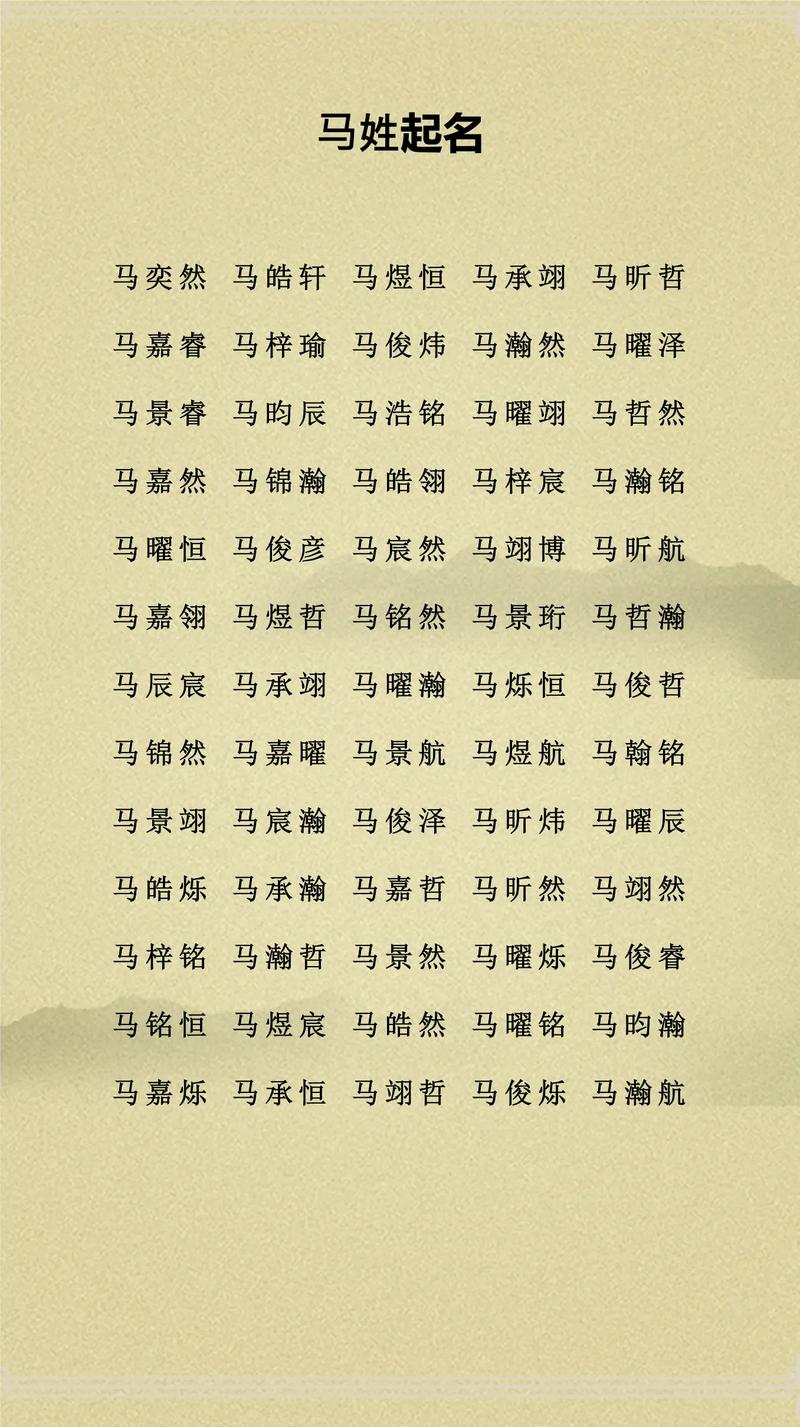 马姓起名
马奕然 马皓轩 马煜恒 马承翊 马昕哲
马嘉睿 马梓瑜 马俊炜 马瀚然 马曜泽
马景睿 马昀辰 马浩铭 马曜翊 马哲然
马嘉然 马锦瀚 马皓翎 马梓宸 马瀚铭
马曜恒 马俊彦 马宸然 马翊博 马昕航
马嘉翎 马煜哲 马铭然 马景珩 马哲瀚
马辰宸 马承翊 马曜瀚 马烁恒 马俊哲
马锦然 马嘉曜 马景航 马煜航 马翰铭
马景翊 马宸瀚 马俊泽 马昕炜 马曜辰
马皓烁 马承瀚 马嘉哲 马昕然 马翊然
马梓铭 马瀚哲 马景然 马曜烁 马俊睿
马铭恒 马煜宸 马皓然 马曜铭 马昀瀚
马嘉烁 马承恒 马翊哲 马俊烁 马瀚航